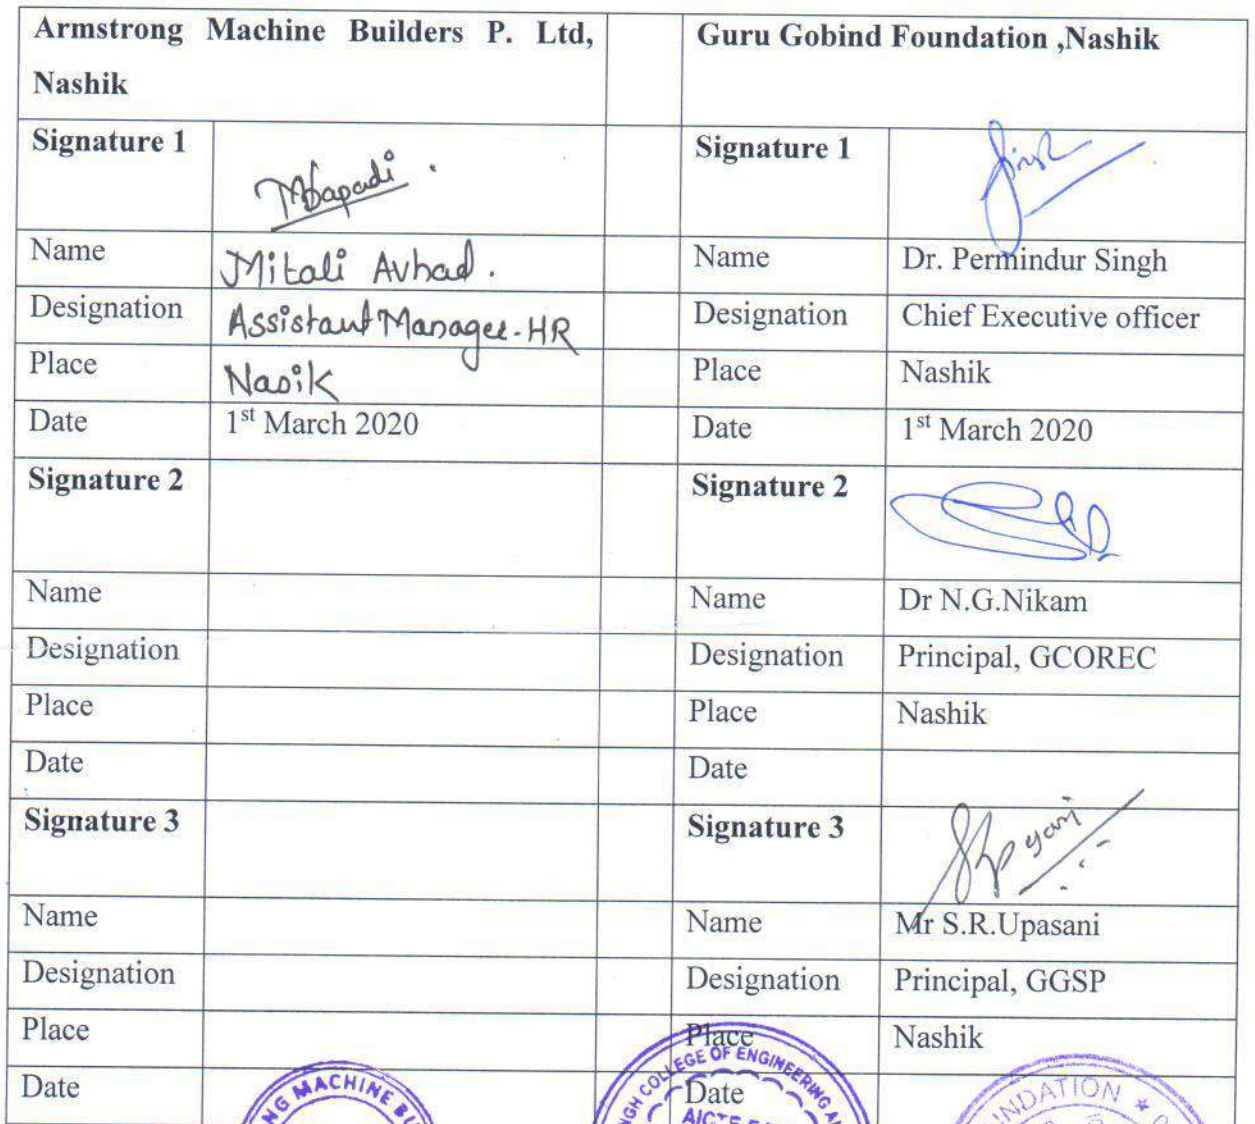 Armstrong Machine Builders P. Ltd, Nashik
Guru Gobind Foundation ,Nashik
Signature 1
Signature 1
Name Mitali Avhad.
Name Dr. Permindur Singh
Designation Assistant Manager-HR
Designation Chief Executive officer
Place Nasik
Place Nashik
Date 1st March 2020
Date 1st March 2020
Signature 2
Signature 2
Name
Name Dr N.G.Nikam
Designation
Designation Principal, GCOREC
Place
Place Nashik
Date
Date
Signature 3
Signature 3
Name
Name Mr S.R.Upasani
Designation
Designation Principal, GGSP
Place
Place Nashik
Date
Date
MACHINE
COLLEGE OF ENGINEERING
AICTE